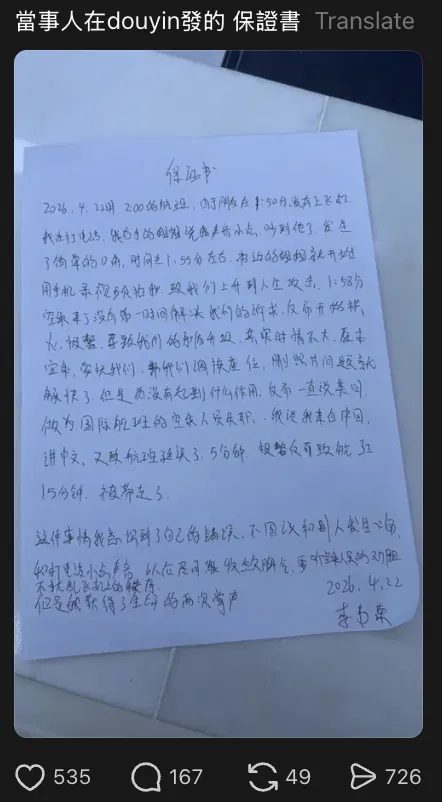 當事人在douyin發的 保證書 Translate
保证书
2026.4.22日 2:00的航班，由于朋友在1:50分没有上飞机
我在打电话，我右手的姐姐说 声音小点，吵到他了，发生
了简单的口角，时间在1:55分左右，
用手机录视频 我，致我们上升到人生攻击，1:58分
空乘来了没有第一时间解决我们的诉求，反而开始
火，报警，导致我们的 升级，其实事情不大，
空乘，安抚我们，帮我们调换座位，删照片问题就
解决了，但是 没有起到什么作用，反而一直说英문
做为国际航班的空乘人员失职，我说我来自中国，
讲中文，又致航班延误了5分钟，报警 致航
15分钟，被带走了。
这件事情我意识到了自己的错误，不因该和别人发生口角，
和打电话小点声音，以后尽可 收敛脾气，要听 人员的劝阻
不扰乱飞机上的秩序
但是我获得了全 的两次掌声
2026.4.22
李
535
167
49
726